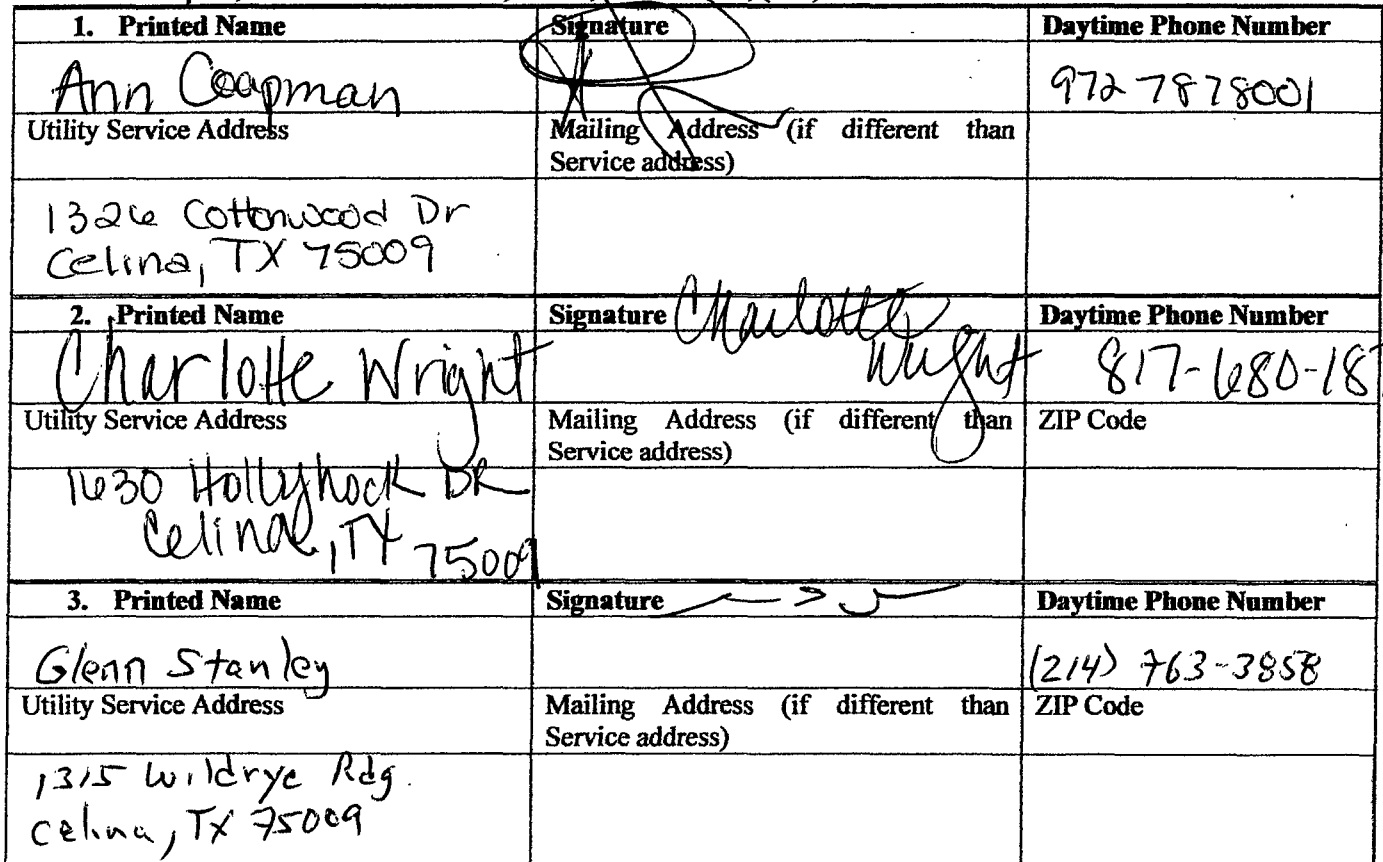 1. Printed Name Signature Daytime Phone Number
Ann Coapman 972 7878001
Utility Service Address Mailing Address (if different than
Service address)
1326 Cottonwood Dr
Celina, TX 75009
2. Printed Name Signature Daytime Phone Number
Charlotte Wright Charlotte Wright 817-680-18
Utility Service Address Mailing Address (if different than ZIP Code
Service address)
1630 Hollyhock DR
Celina, TX 75009
3. Printed Name Signature Daytime Phone Number
Glenn Stanley (214) 763-3858
Utility Service Address Mailing Address (if different than ZIP Code
Service address)
1315 Wildrye Rdg.
Celina, TX 75009